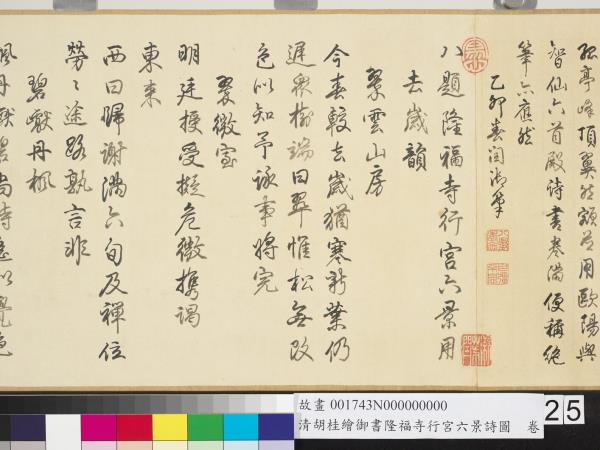 孤亭峰頂翼然額筆用歐陽與
智仙六首殿詩書卷滿便稱絕
筆亦應然
乙卯春閏御筆
八題隆福寺行宮六景用
去歲韻
翠雲山房
今春較去歲猶寒新葉仍
遲綴樹端曰翠惟松無改
色以知予詠事將完
翠微室
明廷授受擬危微攜謁
東來
西日歸謝滿六旬及禪位
勞勞途路孰言非
碧巘丹楓
楓丹巘碧尚待
故畫 001743N000000000
清胡桂繪御書隆福寺行宮六景詩圖 卷
25